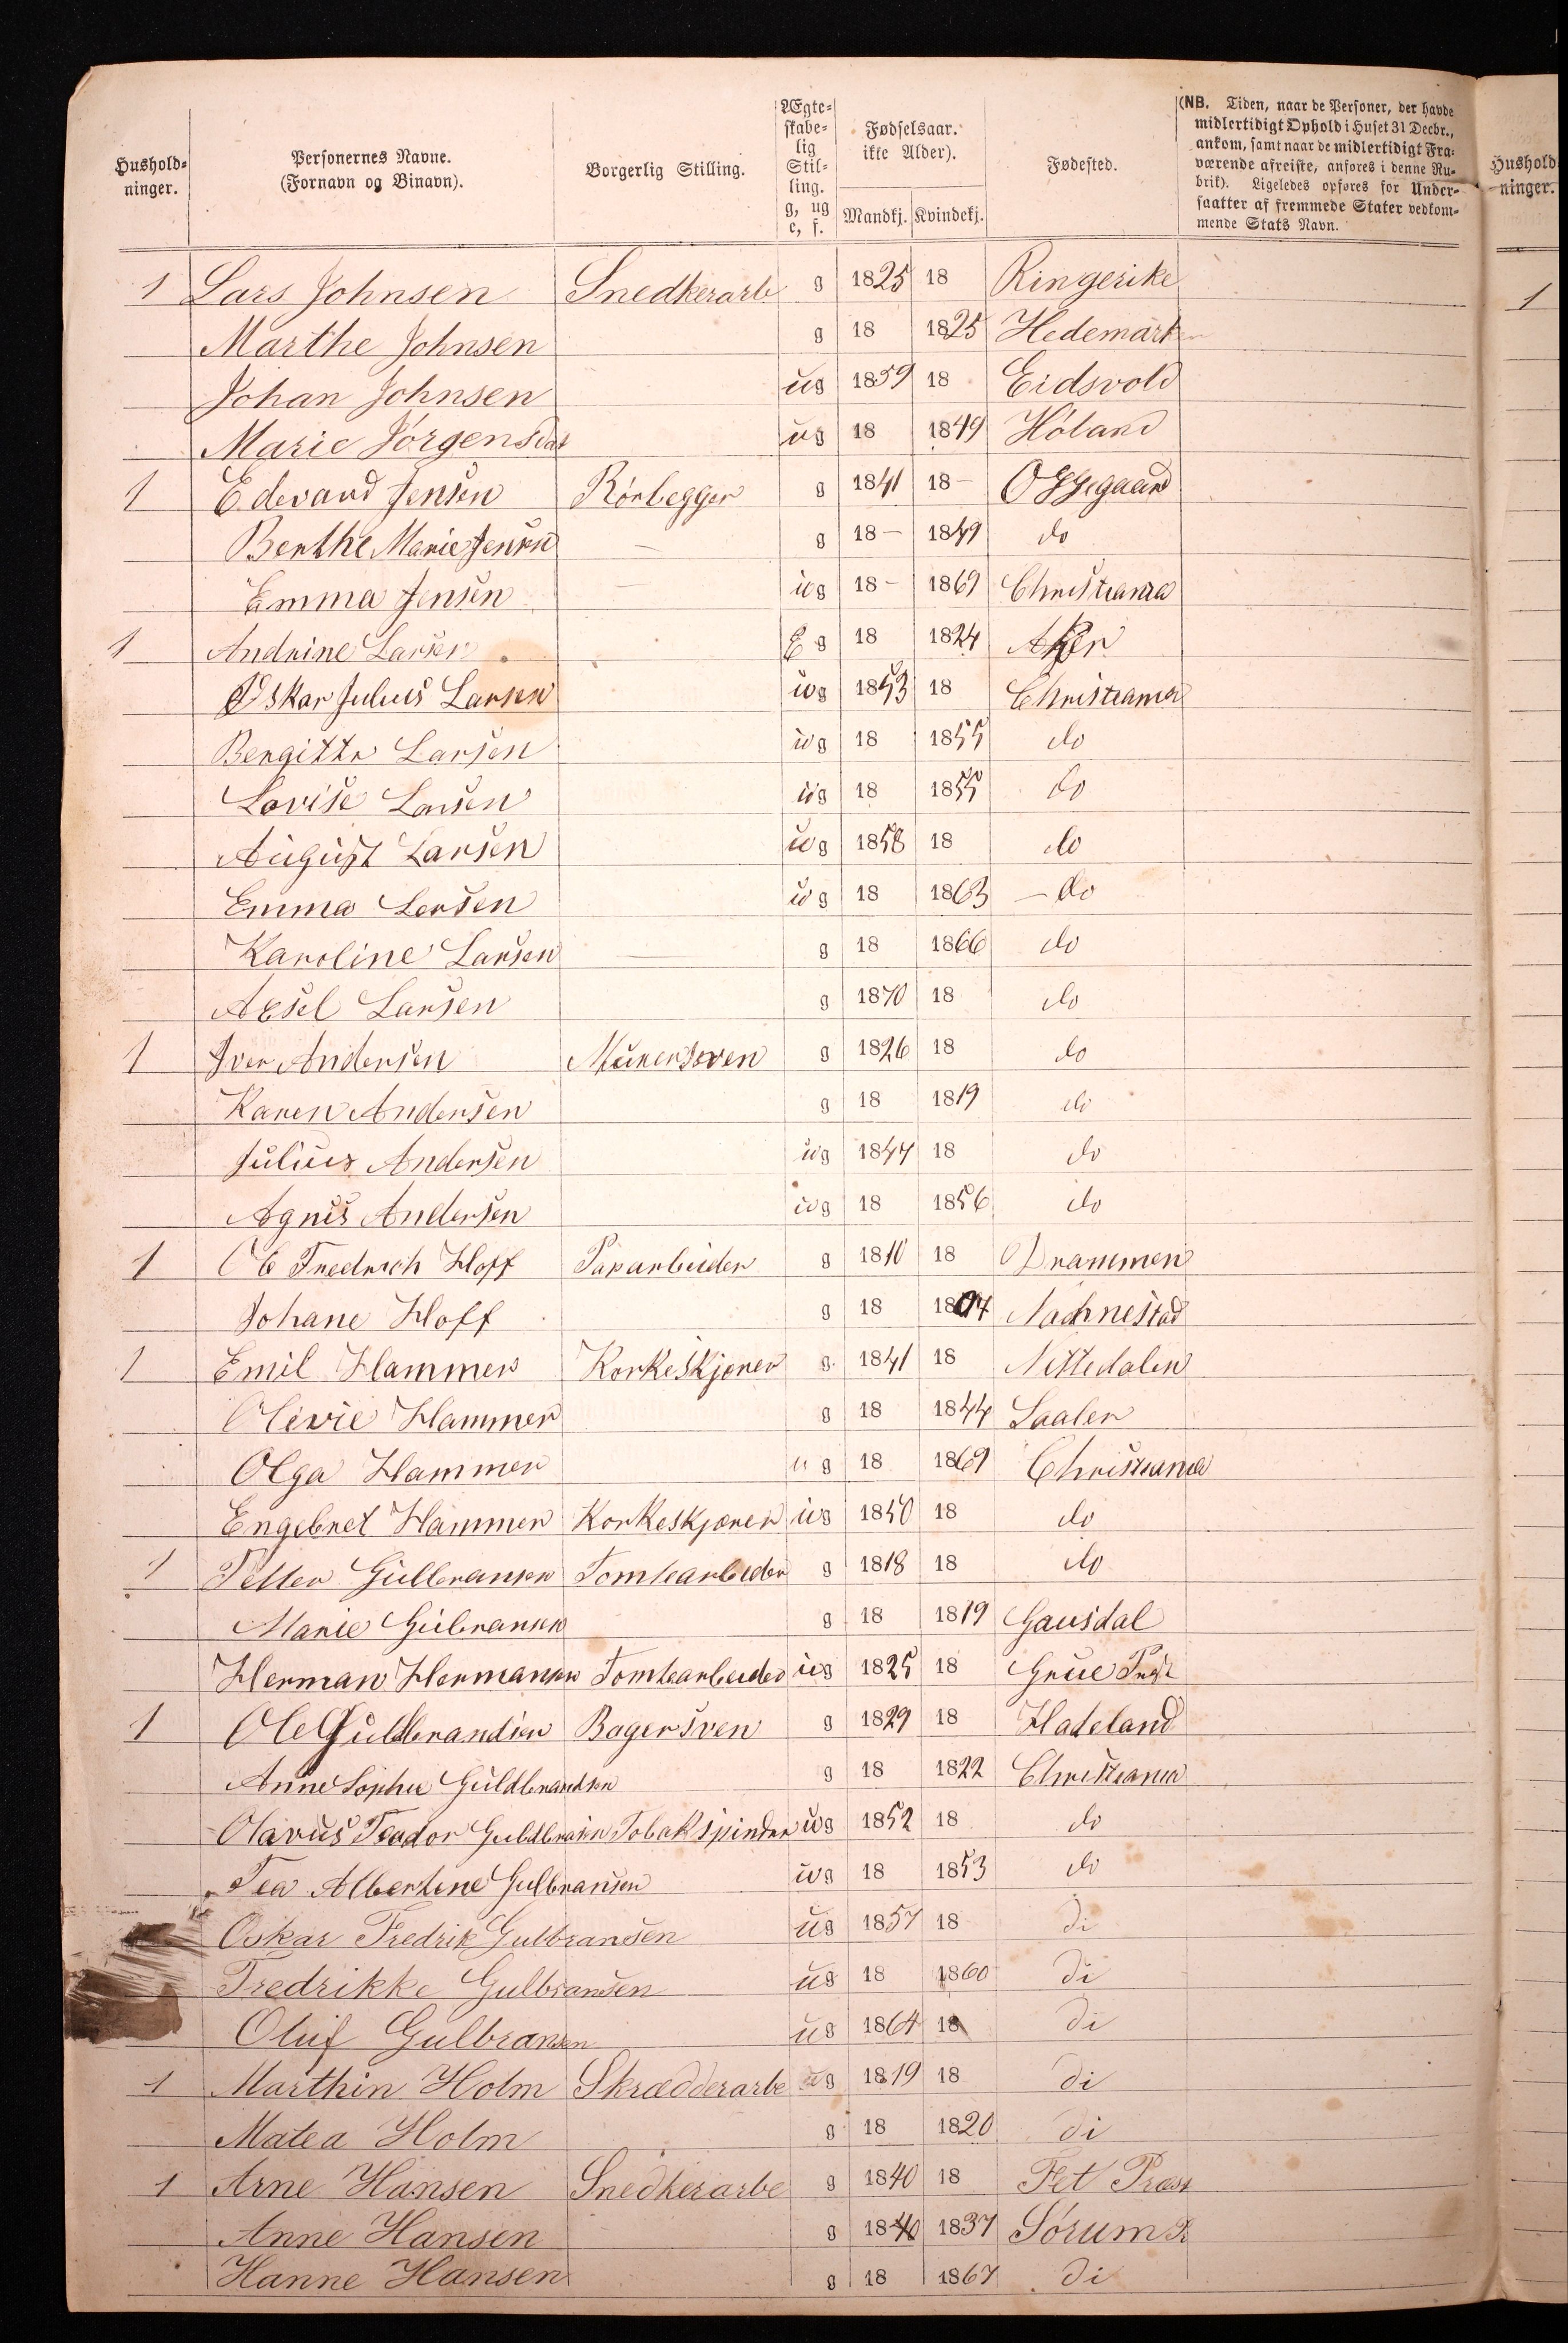 Hushold-
ninger.
Personernes Navne.
(Fornavn og Binavn).
Borgerlig Stilling.
Ægte-
skabe-
lig
Stil-
ling.
g, ug
e, f.
Fødselsaar.
ikke Alder).
Mandkj. Kvindekj.
Fødested.
(NB. Tiden, naar de Personer, der havde
midlertidigt Ophold i Huset 31 Decbr.,
ankom, samt naar de midlertidigt Fra-
værende afreiste, anføres i denne Ru-
brik). Ligeledes opføres for Under-
saatter af fremmede Stater vedkom-
mende Stats Navn.
Hushold
ninger.
1 Lars Johnsen Snedkerarb g 1825 18 Ringerike
1
Marthe Johnsen g 18 1825 Hedemark
Johan Johnsen ug 1859 18 Eidsvold
Marie Jørgensdat ug 18 1849 Høland
1 Edevard Jensen Rørlegger g 1841 18 - Oppegaard
Berthe Marie Jensen — g 18 - 1849 do
Emma Jensen — ug 18 - 1869 Christiania
1 Andrine Larsen E g 18 1824 Aker
Oskar Julius Larsen ug 1853 18 Christiania
Bergitte Larsen ug 18 1855 do
Lovise Larsen ug 18 1855 do
August Larsen ug 1858 18 do
Emma Larsen ug 18 1863 — do
Karoline Larsen — g 18 1866 do
Axsel Larsen g 1870 18 do
1 Iver Andersen Murersven g 1826 18 do
Karen Andersen g 18 1819 do
Julius Andersen ug 1847 18 do
Agnes Andersen ug 18 1856 do
1 Ole Fredrich Hoff Paparbeider g 1810 18 Drammen
Johane Hoff g 18 1804 Nachnestad
1 Emil Hammer Korkeskjærer g. 1841 18 Nittedalen
Olivie Hammer g 18 1844 Saaler
Olga Hammer ug 18 1869 Christiania
Engebret Hammer Korkeskjærer ug 1850 18 do
1 Petter Gulbransen Tomtearbeider g 1818 18 do
Marie Gulbransen g 18 1819 Gausdal
Herman Hermansen Tomtearbeider ug 1825 18 Grue Prest
1 Ole Guldbrandsen Bagersven g 1829 18 Hadeland
Anne Sophie Guldbrandsen g 18 1822 Christiania
Olavus Teodor Guldbransen Tobakspinder ug 1852 18 do
Tea Albertine Gulbransen ug 18 1853 do
Oskar Fredrik Gulbransen ug 1857 18 di
Fredrikke Gulbransen ug 18 1860 di
Oluf Gulbransen ug 1864 18 di
1 Marthin Holm Skrædderarbe g 1819 18 di
Matea Holm g 18 1820 di
1 Arne Hansen Snedkerarbe g 1840 18 Fet Præst
Anne Hansen g 1840 1837 Sørum Pr
Hanne Hansen g 18 1867 di